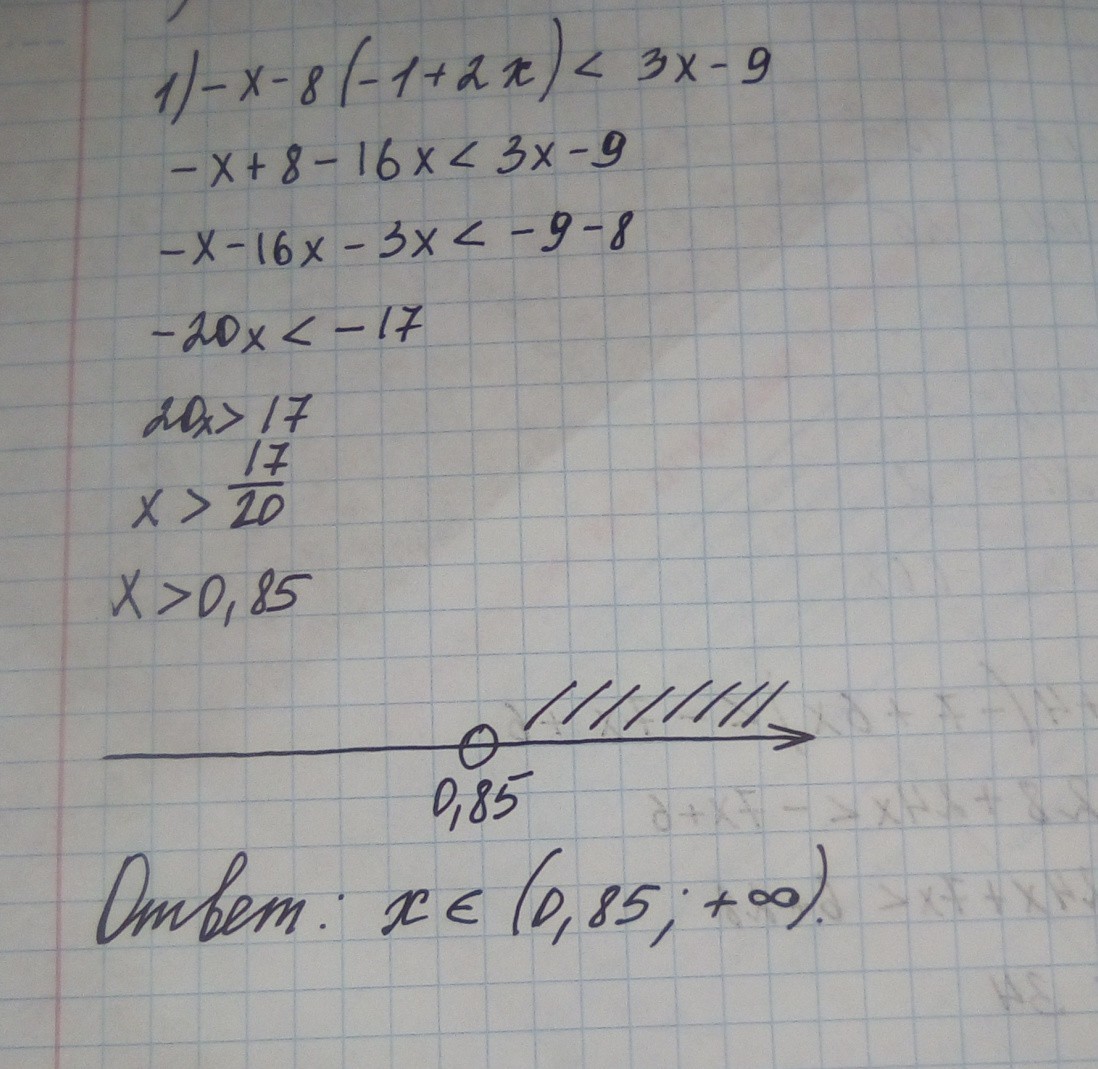 1) -x-8(-1+2x) < 3x-9
-x+8-16x < 3x-9
-x-16x-3x < -9-8
-20x < -17
20x > 17
x > 17/20
x > 0,85
0,85
Ответ: x ∈ (0,85; +∞).